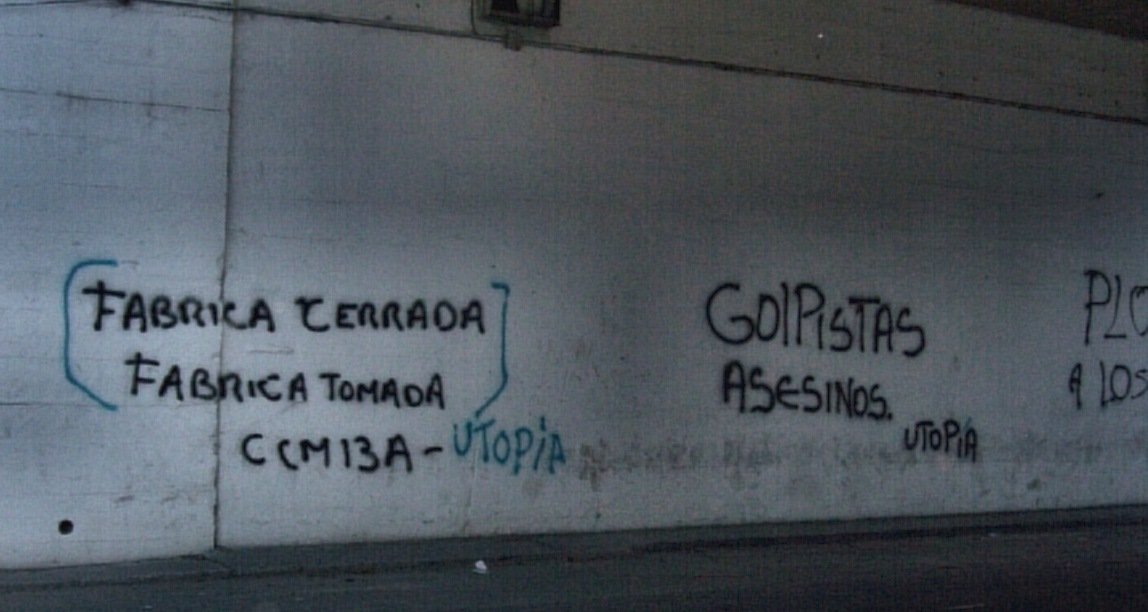 FABRICA CERRADA
FABRICA TOMADA
CCM13A - UTOPÍA
GOLPISTAS
ASESINOS.
UTOPÍA
A LOS